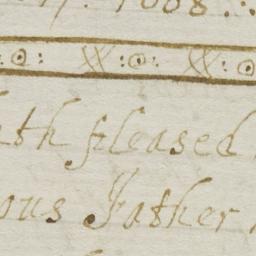 1668
ath pleased
ous Father